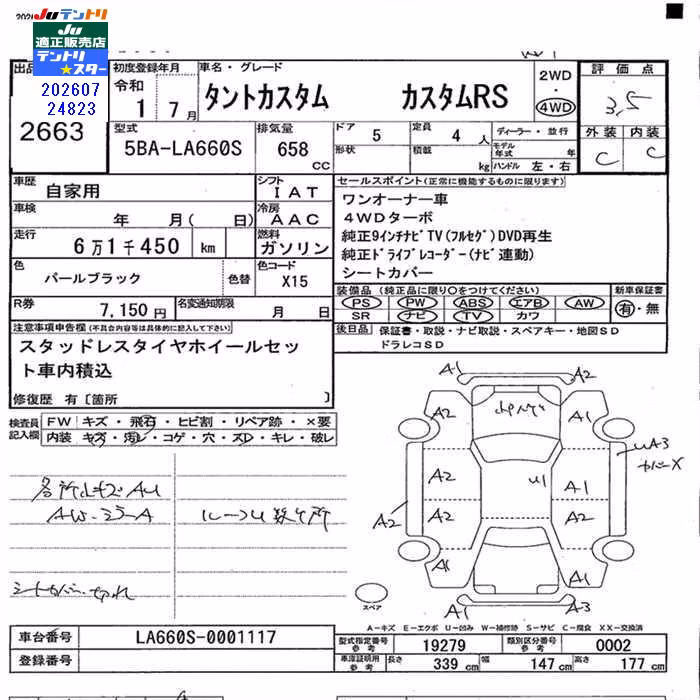 JUテントリ
JU
適正販売店
テントリ
★スター
202607
24823
2663
初度登録年月
令和
1 7月
車名・グレード
タントカスタム カスタムRS
2WD
・
4WD
評価点
3,5
外装 内装
C C
型式
5BA-LA660S
排気量
658 CC
ドア 5
形状
定員 4 人
積載 kg
ディーラー・並行
モデル年式 年
ハンドル 左・右
車歴 自家用
シフト IAT
車検 年 月( 日)
冷房 AAC
走行 6万1千450 km
燃料 ガソリン
色 パールブラック 色替
色コード X15
R券 7,150円
名変通知期限 月 日
セールスポイント(正常に機能するものに限ります)
ワンオーナー車
4WDターボ
純正9インチナビTV(フルセグ)DVD再生
純正ドライブレコーダー(ナビ連動)
シートカバー
装備品(純正品に限り○をつけてください)
PS PW ABS エアB AW
SR ナビ TV カワ
新車保証書
有・無
後日品 保証書・取説・ナビ取説・スペアキー・地図SD
ドラレコSD
注意事項申告欄(不具合内容等は具体的に記入して下さい)
スタッドレスタイヤホイールセッ
ト車内積込
修復歴 有〔箇所 〕
検査員記入欄
FW キズ・飛石・ヒビ割・リペア跡・×要
内装 キズ・汚レ・コゲ・穴・スレ・キレ・破レ
AW
シートカバー切れ
A1
A2
A2 A1
UA3
カバーX
A2 U1 A1
A2 A2 A2
A1 A1
A1 A3
スペア
A-キズ E-エクボ U-凹み W-補修跡 S-サビ C-腐食 XX-交換済
車台番号 LA660S-0001117
登録番号
型式指定番号参考 19279
類別区分番号参考 0002
車庫証明用参考 長さ 339 cm 幅 147 cm 高さ 177 cm